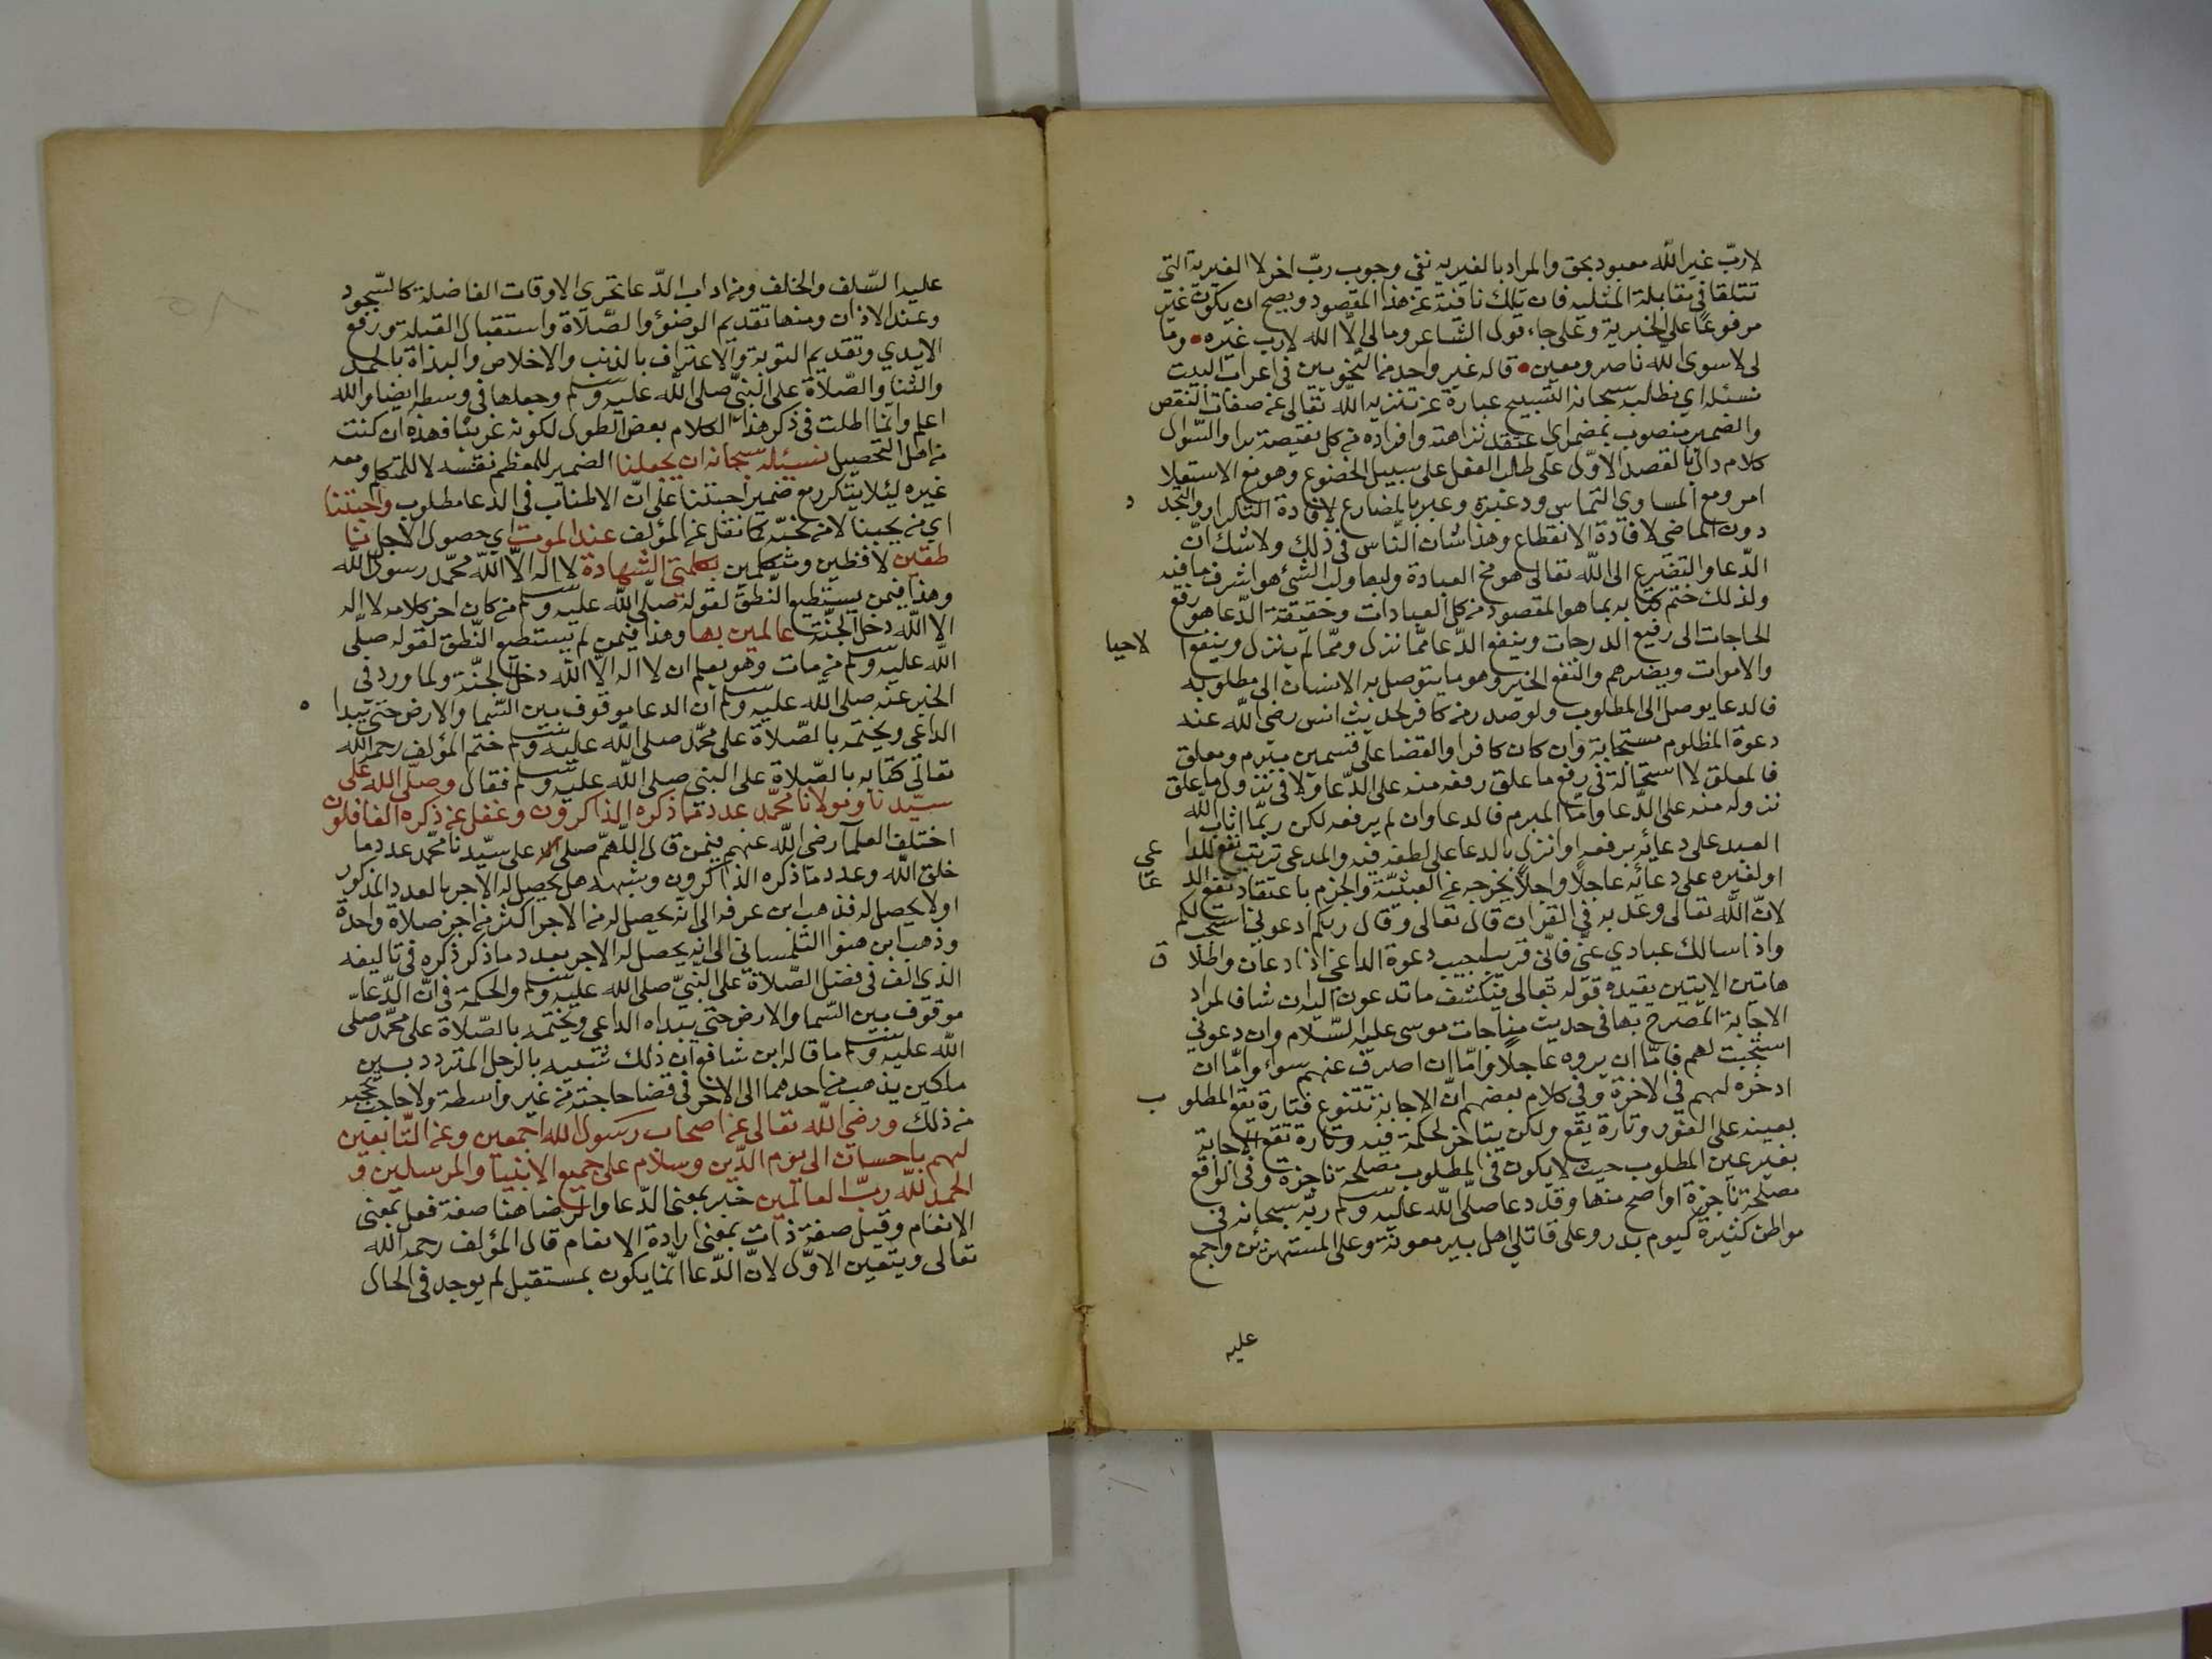 لاربّ غير الله معبود بحق والمراد بالغيرية نفي وجوب ربّ اخر لا الغيرية التي
تتلقا في مقابلة المثلية فان تلك نافية عن هذا المقصود ويصح ان يكون غير
مرفوعًا على الخبرية وعلى جاء قول الشاعر ومالي الّا الله لارب غيره • وما
لي لاسوى الله ناصر ومعين • قاله غير واحد من النحويين في اعراب البيت
نسئله اي نطلب سبحانه التسبيح عبارة عن تنزيه الله تعالى عن صفات النقص
والضمير منصوب بمضمر اي اعتقد نزاهته وافراده من كل نقيصة برا والسّوال
كلام دال بالقصد الاوّل على طلب الفعل على سبيل الخضوع وهو مع الاستعلا
امر ومع المساوي التماس ودغبرة وعبر بالمضارع لافادة التكرار والتجد د
دون الماضي لافادة الانقطاع وهذا شان الناس في ذلك ولاشك انّ
الدّعا والتضرع الى الله تعالى هو مخ العبادة ولبها ولب الشيء هو اشرف ما فيه
ولذلك ختم كتابه بما هو المقصود من كل العبادات وحقيقة الدّعا هو رفع
الحاجات الى رفيع الدرجات وينفع الدّعا ممّا نزل وممّا لم ينزل وينفع الاحيا
والاموات ويضرهم والنفع الخير وهو ما يتوصل به الانسان الى مطلوبه
فالدعا يوصل الى المطلوب ولو صدر من كافر لحديث انس رضي الله عنه
دعوة المظلوم مستجابة وان كان كافرا والقضا على قسمين مبرم ومعلق
فالمعلق لا استحالة في رفع ما علق رفعه منه على الدّعا ولا في نزول ما علق
نزوله منه على الدّعا وامّا المبرم فالدعا وان لم يرفعه لكن ربّما اثاب الله
العبد على دعائه برفعه او انزل بالدعا على لطفه فيه والمدعى ترتب نفع للدا عي
او لغيره على دعائه عاجلًا واجلًا يخرجه عن العبثيّة والجزم باعتقاد نفع الد عا
لانّ الله تعالى وعد به في القران قال تعالى وقال ربكم ادعوني استجب لكم
واذا سالك عبادي عنّي فانّي قريب اجيب دعوة الداعي اذا دعان واطلا ق
هاتين الايتين يقيده قوله تعالى فيكشف ما تدعون اليه ان شا فالمراد
الاجابة المصرح بها في حديث مناجات موسى عليه السّلام وان دعوني
استجبت لهم فامّا ان يروه عاجلًا وامّا ان اصرف عنهم سوء وامّا ان
ادخره لهم في الاخرة وفي كلام بعضهم انّ الاجابة تتنوع فتارة يقع المطلو ب
بعينه على الفور وتارة يقع ولكن يتاخر لحكمة فيه وتارة تقع الاجابة
بغير عين المطلوب حيث لايكون في المطلوب مصلحة ناجزة وفي الواقع
مصلحة ناجزة او اصح منها وقد دعا صلّى الله عليه وسلم ربّه سبحانه في
مواطن كثيرة كيوم بدر وعلى قاتلي اهل بير معونة وعلى المستهزئين واجمع
عليه
عليه السّلف والخلف ومن اداب الدّعا تحري الاوقات الفاضلة كالسّجود
وعند الاذان ومنها تقديم الوضؤ والصّلاة واستقبال القبلة ورفع
الايدي وتقديم التوبة والاعتراف بالذنب والاخلاص والبداة بالحمد
والثنا والصّلاة على النبيّ صلى الله عليه وسلم وجعلها في وسطه ايضا والله
اعلم وانّما اطلت في ذكر هذا الكلام بعض الطول لكونه غريبا فهذه ان كنت
من اهل التحصيل نسئله سبحانه ان يجعلنا الضمير للمعظم نفسه لا للمتكلم ومعه
غيره ليئلا يتكرر مع ضمير احبتنا على انّ الاطناب في الدعا مطلوب واحبتنا
اي من يحبنا لا من نحبّه كما نقل عن المؤلف عند الموت اي حصول الاجل نا
طقين لافظين ومتكلمين بكلمتي الشهادة لا اله الّا الله محمّد رسول الله
وهذا فيمن يستطيع النّطق لقوله صلّى الله عليه وسلم من كان اخر كلامه لا اله
الا الله دخل الجنّة عالمين بها وهذا فيمن لم يستطيع النّطق لقوله صلّى
الله عليه وسلم من مات وهو يعلم ان لا اله الّا الله دخل الجنّة ولما ورد في
الخبر عنه صلى الله عليه وسلم ان الدعا موقوف بين السّما والارض حتى يبدا ه
الداعي ويختمه بالصّلاة على محمّد صلى الله عليه وسلم ختم المؤلف رحمه الله
تعالى كتابه بالصّلاة على النبي صلى الله عليه وسلم فقال وصلّى الله على
سيّدنا ومولانا محمّد عدد ما ذكره الذاكرون وغفل عن ذكره الغافلون
اختلف العلما رضي الله عنهم فيمن قال اللّهمّ صلّي على سيّدنا محمّد عدد ما
خلق الله وعدد ما ذكره الذاكرون وشبهه هل يحصل له الاجر بالعدد المذكور
اولا يحصل له فذهب ابن عرفه الى انه يحصل له من الاجر اكثر من اجر صلاة واحدة
وذهب ابن التلمساني الى انه يحصل له الاجر بعدد ما ذكر ذكره في تاليفه
الذي الف في فضل الصّلاة على النّبيّ صلى الله عليه وسلم والحكمة في انّ الدّعا
موقوف بين السّما والارض حتى يبداه الداعي ويختمه بالصّلاة على محمّد صلى
الله عليه وسلم ما قاله ابن شافع ان ذلك شبيه بالرجل المتردد بين
ملكين يذهب من احدهما الى الاخر في قضا حاجته من غير واسطة ولا حاجب يحجبه
من ذلك ورضي الله تعالى عن اصحاب رسول الله اجمعين وعن التّابعين
لهم باحسان الى يوم الدّين وسلام على جميع الانبيا والمرسلين و
الحمد لله ربّ العالمين خبر بمعنى الدّعا والرضا هنا صفة فعل بمعنى
الانعام وقيل صفة ذات بمعنى ارادة الانعام قال المؤلف رحمه الله
تعالى ويتعين الاوّل لانّ الدّعا انّما يكون بمستقبل لم يوجد في الحال